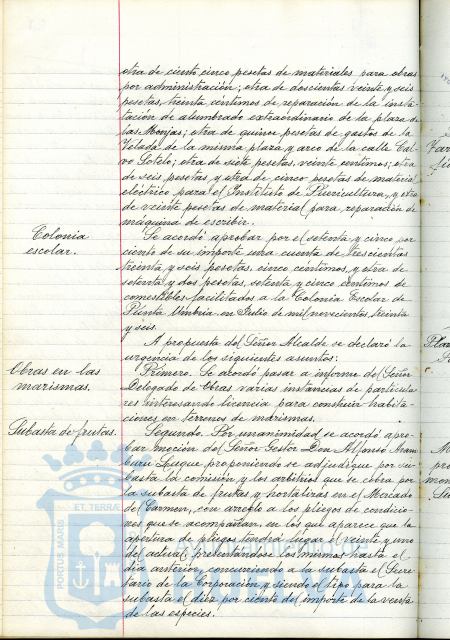 otra de ciento cinco pesetas de materiales para obras
por administración; otra de doscientas veinte y seis
pesetas, treinta centimos de reparación de la insta-
lación de alumbrado extraordinario de la plaza de
las Monjas; otra de quince pesetas de gastos de la
Velada de la misma plaza y arco de la calle Cal-
vo Sotelo; otra de siete pesetas, veinte centimos; otra
de seis pesetas, y otra de cinco pesetas de material
eléctrico para el Instituto de Puericultura, y otra
de veinte pesetas de material para reparación de
máquina de escribir.
Colonia
escolar.
Se acordó aprobar por el setenta y cinco por
ciento de su importe una cuenta de trescientas
treinta y seis pesetas, cinco centimos, y otra de
setenta y dos pesetas, setenta y cinco centimos de
comestibles facilitados a la Colonia Escolar de
Punta Umbria en Julio de mil novecientos treinta
y seis.
A propuesta del Señor Alcalde se declaró la
urgencia de los siguientes asuntos:
Obras en las
marismas.
Primero. Se acordó pasar a informe del Señor
Delegado de Obras varias instancias de particula-
res interesando licencia para construir habita-
ciones en terrenos de marismas.
Subasta de frutas.
Segundo. Por unanimidad se acordó apro-
bar moción del Señor Gestor Don Alfonso Aram-
buru Luque proponiendo se adjudique por su-
basta la comisión y los arbitrios que se cobra por
la subasta de frutas y hortalizas en el Mercado
del Carmen, con arreglo a los pliegos de condicio-
nes que se acompañan, en los que aparece que la
apertura de pliegos tendrá lugar el veinte y uno
del actual, presentandose los mismos hasta el
dia anterior, concurriendo a la subasta el Secre-
tario de la Corporación y siendo el tipo para la
subasta el diez por ciento del importe de la venta
de las especies.
PORTUS MARIS
ET TERRA